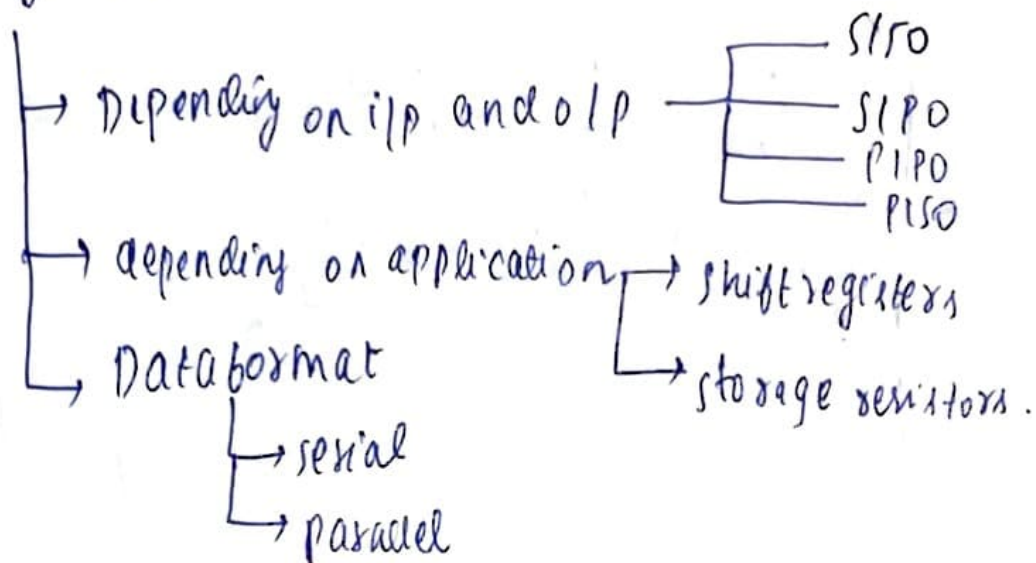 Dipending on i/p and o/p
SISO
SIPO
PIPO
PISO
depending on application
shift registers
storage resistors.
Data format
serial
parallel